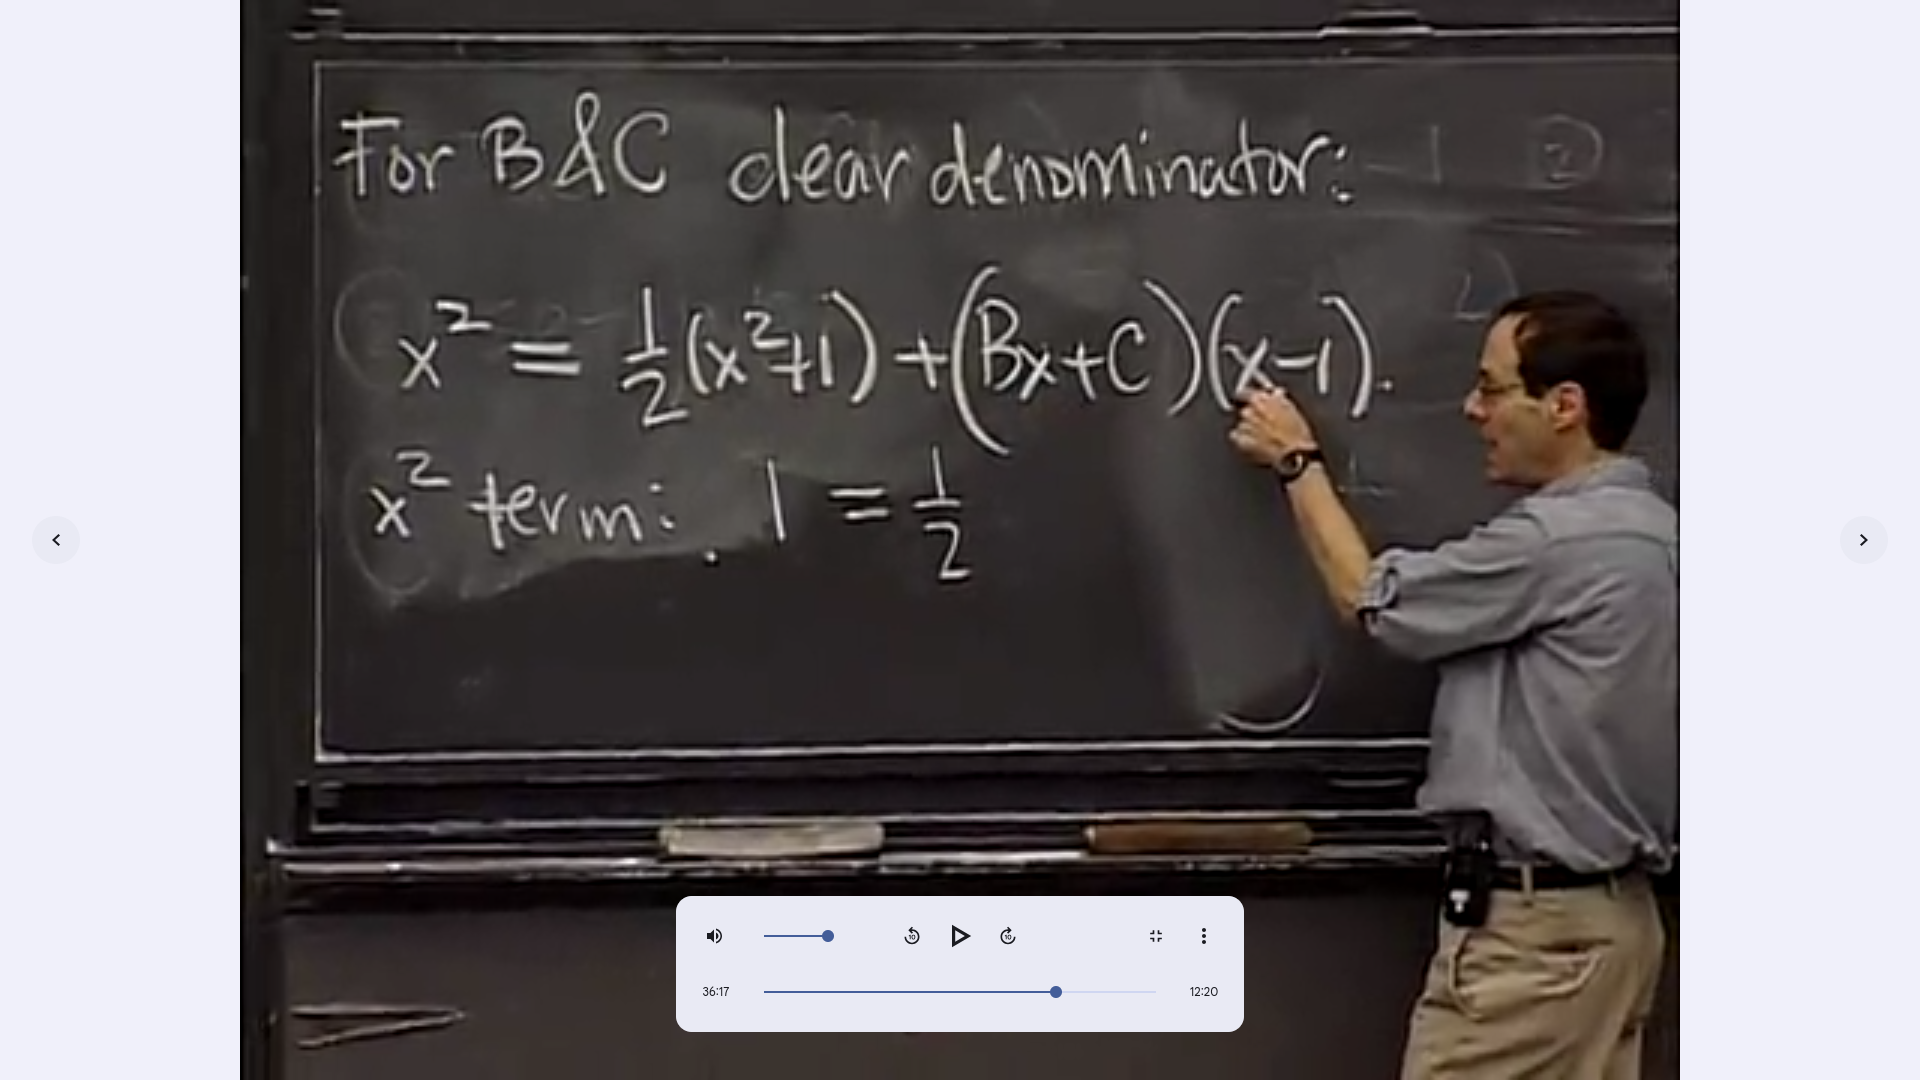 For B & C clear denominator:
x² = 1/2 (x²+1) + (Bx+C)(x-1).
x² term: 1 = 1/2
36:17
12:20